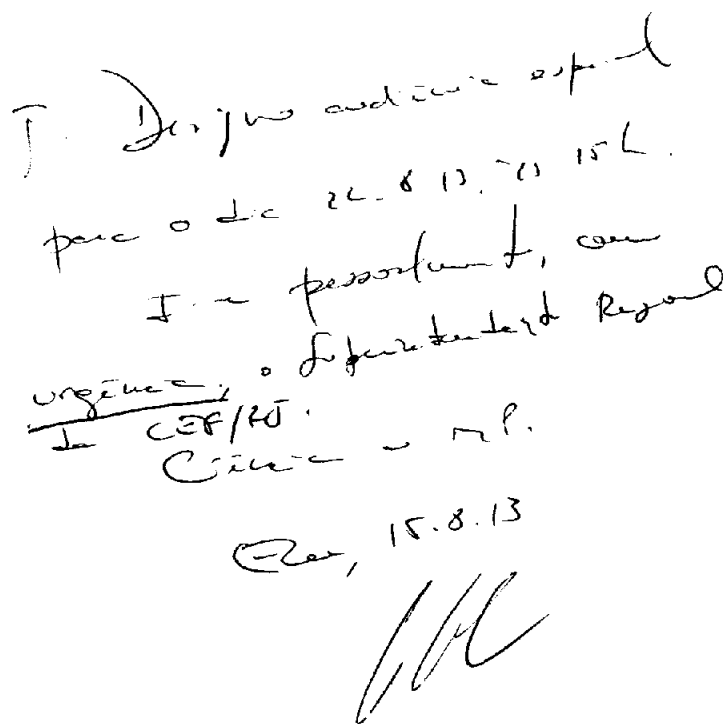 J. Designo audiência especial
para o dia 22.8.13, às 15h.
I-se pessoalmente, com
urgência, o Superintendente Regional
da CEF/RJ.
Ciência ao MP.
15.8.13